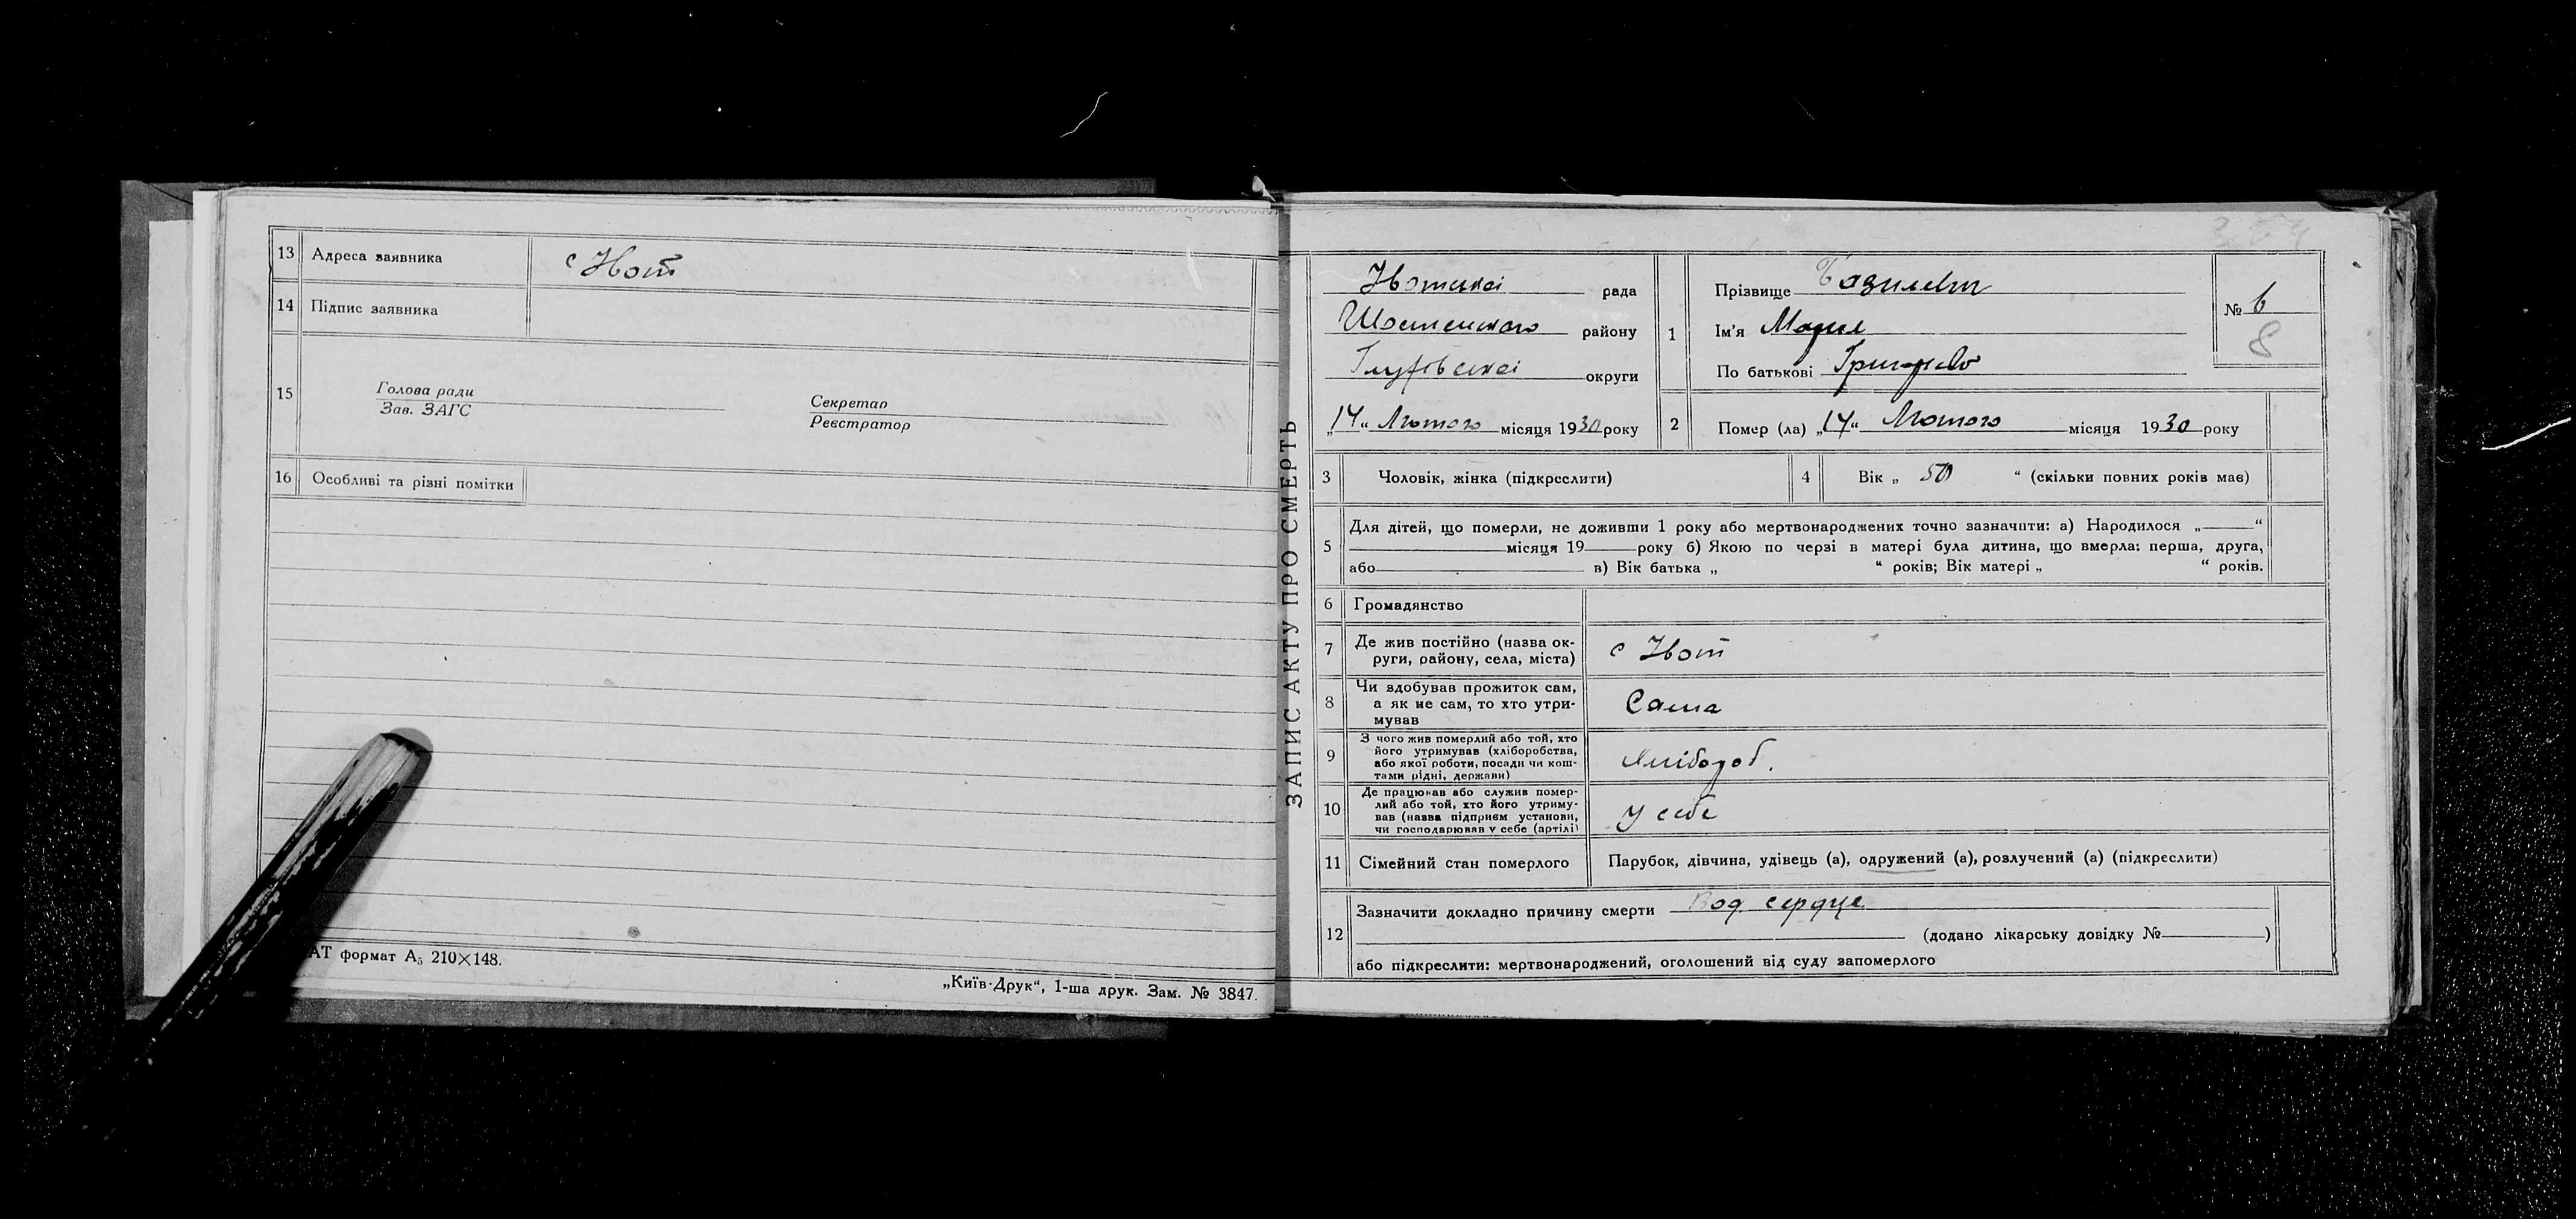 13 Адреса заявника с Івот
14 Підпис заявника
15 Голова ради
Зав. ЗАГС
Секретар
Реєстратор
16 Особливі та різні помітки
АТ формат А5 210×148.
„Київ-Друк“, 1-ша друк. Зам. № 3847.
ЗАПИС АКТУ ПРО СМЕРТЬ
Івотської рада
Шостенского району
Глухівської округи
„14“ Лютого місяця 1930 року
1 Прізвище Базилевич
Ім'я Марія
По батькові
№ 6
8
2 Помер (ла) „14“ Лютого місяця 1930 року
3 Чоловік, жінка (підкреслити)
4 Вік „ 50 “ (скільки повних років має)
5 Для дітей, що померли, не доживши 1 року або мертвонароджених точно зазначити: а) Народилося „——“
місяця 19 року б) Якою по черзі в матері була дитина, що вмерла: перша, друга,
або в) Вік батька „ “ років; Вік матері „ “ років.
6 Громадянство
7 Де жив постійно (назва ок-
руги, району, села, міста) с Івот
8 Чи здобував прожиток сам,
а як не сам, то хто утри-
мував Сама
9 З чого жив померлий або той, хто
його утримував (хліборобства,
або якої роботи, посади чи кош-
тами рідні, держави) хлібороб.
10 Де працював або служив помер-
лий або той, хто його утриму-
вав (назва підприєм установи,
чи господарював у себе (артілі) у себе
11 Сімейний стан померлого Парубок, дівчина, удівець (а), одружений (а), розлучений (а) (підкреслити)
12 Зазначити докладно причину смерти сердце
(додано лікарську довідку № )
або підкреслити: мертвонароджений, оголошений від суду запомерлого